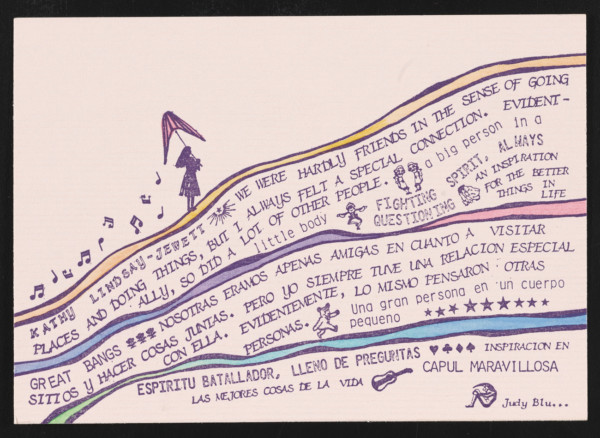 KATHY LINDSAY-JEWETT WE WERE HARDLY FRIENDS IN THE SENSE OF GOING
PLACES AND DOING THINGS, BUT I ALWAYS FELT A SPECIAL CONNECTION. EVIDENT-
ALLY, SO DID A LOT OF OTHER PEOPLE. a big person in a
little body FIGHTING SPIRIT, ALWAYS
QUESTIONING AN INSPIRATION
FOR THE BETTER
THINGS IN LIFE
GREAT BANGS NOSOTRAS ERAMOS APENAS AMIGAS EN CUANTO A VISITAR
SITIOS Y HACER COSAS JUNTAS. PERO YO SIEMPRE TUVE UNA RELACION ESPECIAL
CON ELLA. EVIDENTEMENTE, LO MISMO PENSARON OTRAS
PERSONAS. Una gran persona en un cuerpo
pequeno
ESPIRITU BATALLADOR, LLENO DE PREGUNTAS INSPIRACION EN
LAS MEJORES COSAS DE LA VIDA CAPUL MARAVILLOSA
Judy Blu...